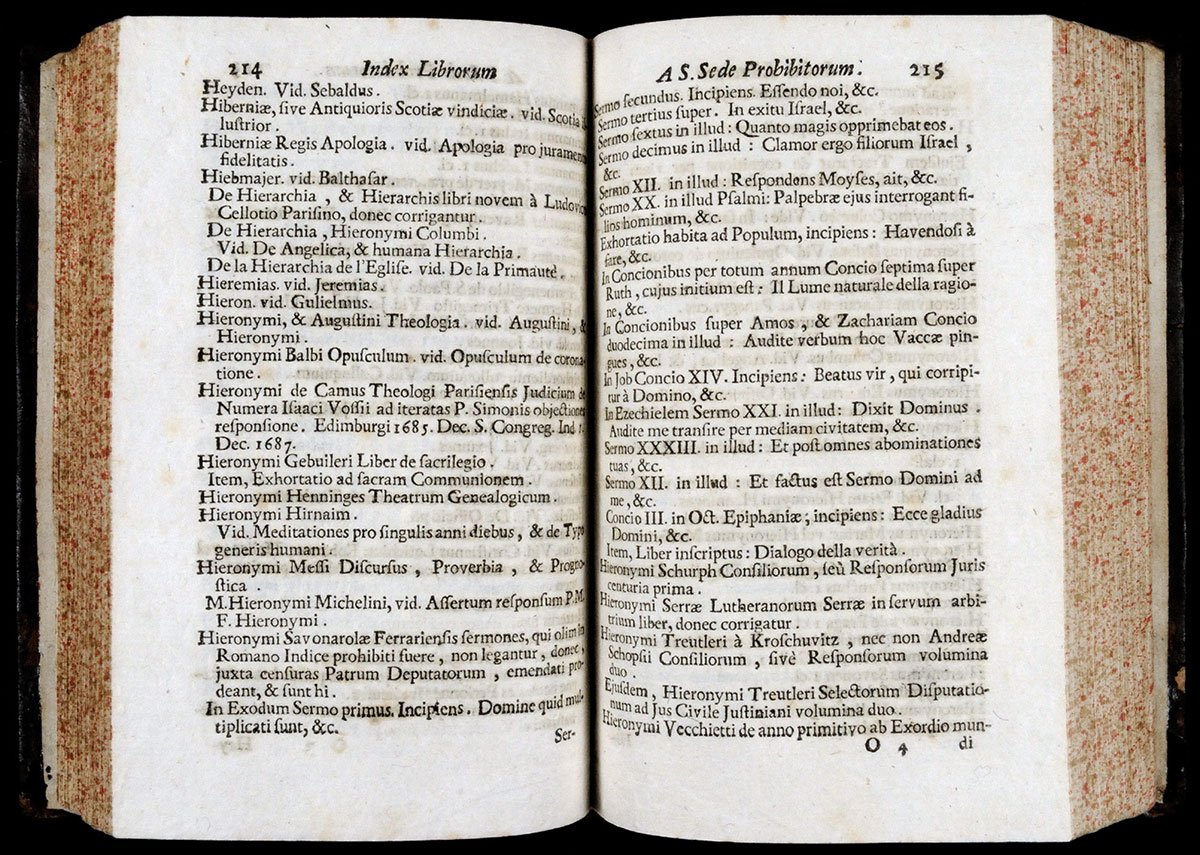 214 Index Librorum
Heyden. Vid. Sebaldus.
Hiberniæ, ſive Antiquioris Scotiæ vindiciæ. vid. Scotia
luſtrior.
Hiberniæ Regis Apologia. vid. Apologia pro juramen
fidelitatis.
Hiebmajer. vid. Balthaſar.
De Hierarchia, & Hierarchis libri novem à Ludovico
Cellotio Pariſino, donec corrigantur.
De Hierarchia, Hieronymi Columbi.
Vid. De Angelica, & humana Hierarchia.
De la Hierarchia de l'Egliſe. vid. De la Primautè.
Hieremias. vid. Jeremias.
Hieron. vid. Gulielmus.
Hieronymi, & Auguſtini Theologia. vid. Auguſtini, &
Hieronymi.
Hieronymi Balbi Opuſculum. vid. Opuſculum de corona-
tione.
Hieronymi de Camus Theologi Pariſienſis Judicium de
Numera Iſaaci Voſſii ad iteratas P. Simonis objectiones
reſponſione. Edimburgi 1685. Dec. S. Congreg. Ind 1.
Dec. 1687.
Hieronymi Gebuileri Liber de ſacrilegio.
Item, Exhortatio ad ſacram Communionem.
Hieronymi Henninges Theatrum Genealogicum.
Hieronymi Hirnaim.
Vid. Meditationes pro ſingulis anni diebus, & de Typo
generis humani.
Hieronymi Meſſi Diſcurſus, Proverbia, & Progno-
ſtica.
M. Hieronymi Michelini, vid. Aſſertum reſponſum P. M.
F. Hieronymi.
Hieronymi Savonarolæ Ferrarienſis ſermones, qui olim in
Romano Indice prohibiti fuere, non legantur, donec,
juxta cenſuras Patrum Deputatorum, emendati pro-
deant, & ſunt hi.
In Exodum Sermo primus. Incipiens. Domine quid mul-
tiplicati ſunt, &c.
Ser-
A S. Sede Prohibitorum. 215
Sermo ſecundus. Incipiens. Eſſendo noi, &c.
Sermo tertius ſuper. In exitu Iſrael, &c.
Sermo ſextus in illud: Quanto magis opprimebat eos.
Sermo decimus in illud: Clamor ergo filiorum Iſrael,
&c.
Sermo XII. in illud: Reſpondens Moyſes, ait, &c.
Sermo XX. in illud Pſalmi: Palpebræ ejus interrogant fi-
lios hominum, &c.
Exhortatio habita ad Populum, incipiens: Havendoſi à
fare, &c.
In Concionibus per totum annum Concio ſeptima ſuper
Ruth, cujus initium eſt: Il Lume naturale della ragio-
ne, &c.
In Concionibus ſuper Amos, & Zachariam Concio
duodecima in illud: Audite verbum hoc Vaccæ pin-
gues, &c.
In Job Concio XIV. Incipiens: Beatus vir, qui corripi-
tur à Domino, &c.
In Ezechielem Sermo XXI. in illud: Dixit Dominus.
Audite me tranſire per mediam civitatem, &c.
Sermo XXXIII. in illud: Et poſt omnes abominationes
tuas, &c.
Sermo XII. in illud: Et factus eſt Sermo Domini ad
me, &c.
Concio III. in Oct. Epiphaniæ, incipiens: Ecce gladius
Domini, &c.
Item, Liber inſcriptus: Dialogo della verità.
Hieronymi Schurph Conſiliorum, ſeù Reſponſorum Juris
centuria prima.
Hieronymi Serræ Lutheranorum Serræ in ſervum arbi-
trium liber, donec corrigatur.
Hieronymi Treutleri à Kroſchuvitz, nec non Andreæ
Schopſii Conſiliorum, ſivè Reſponſorum volumina
duo.
Ejuſdem, Hieronymi Treutleri Selectorum Diſputatio-
num ad Jus Civile Juſtiniani volumina duo.
Hieronymi Vecchietti de anno primitivo ab Exordio mun-
O 4 di